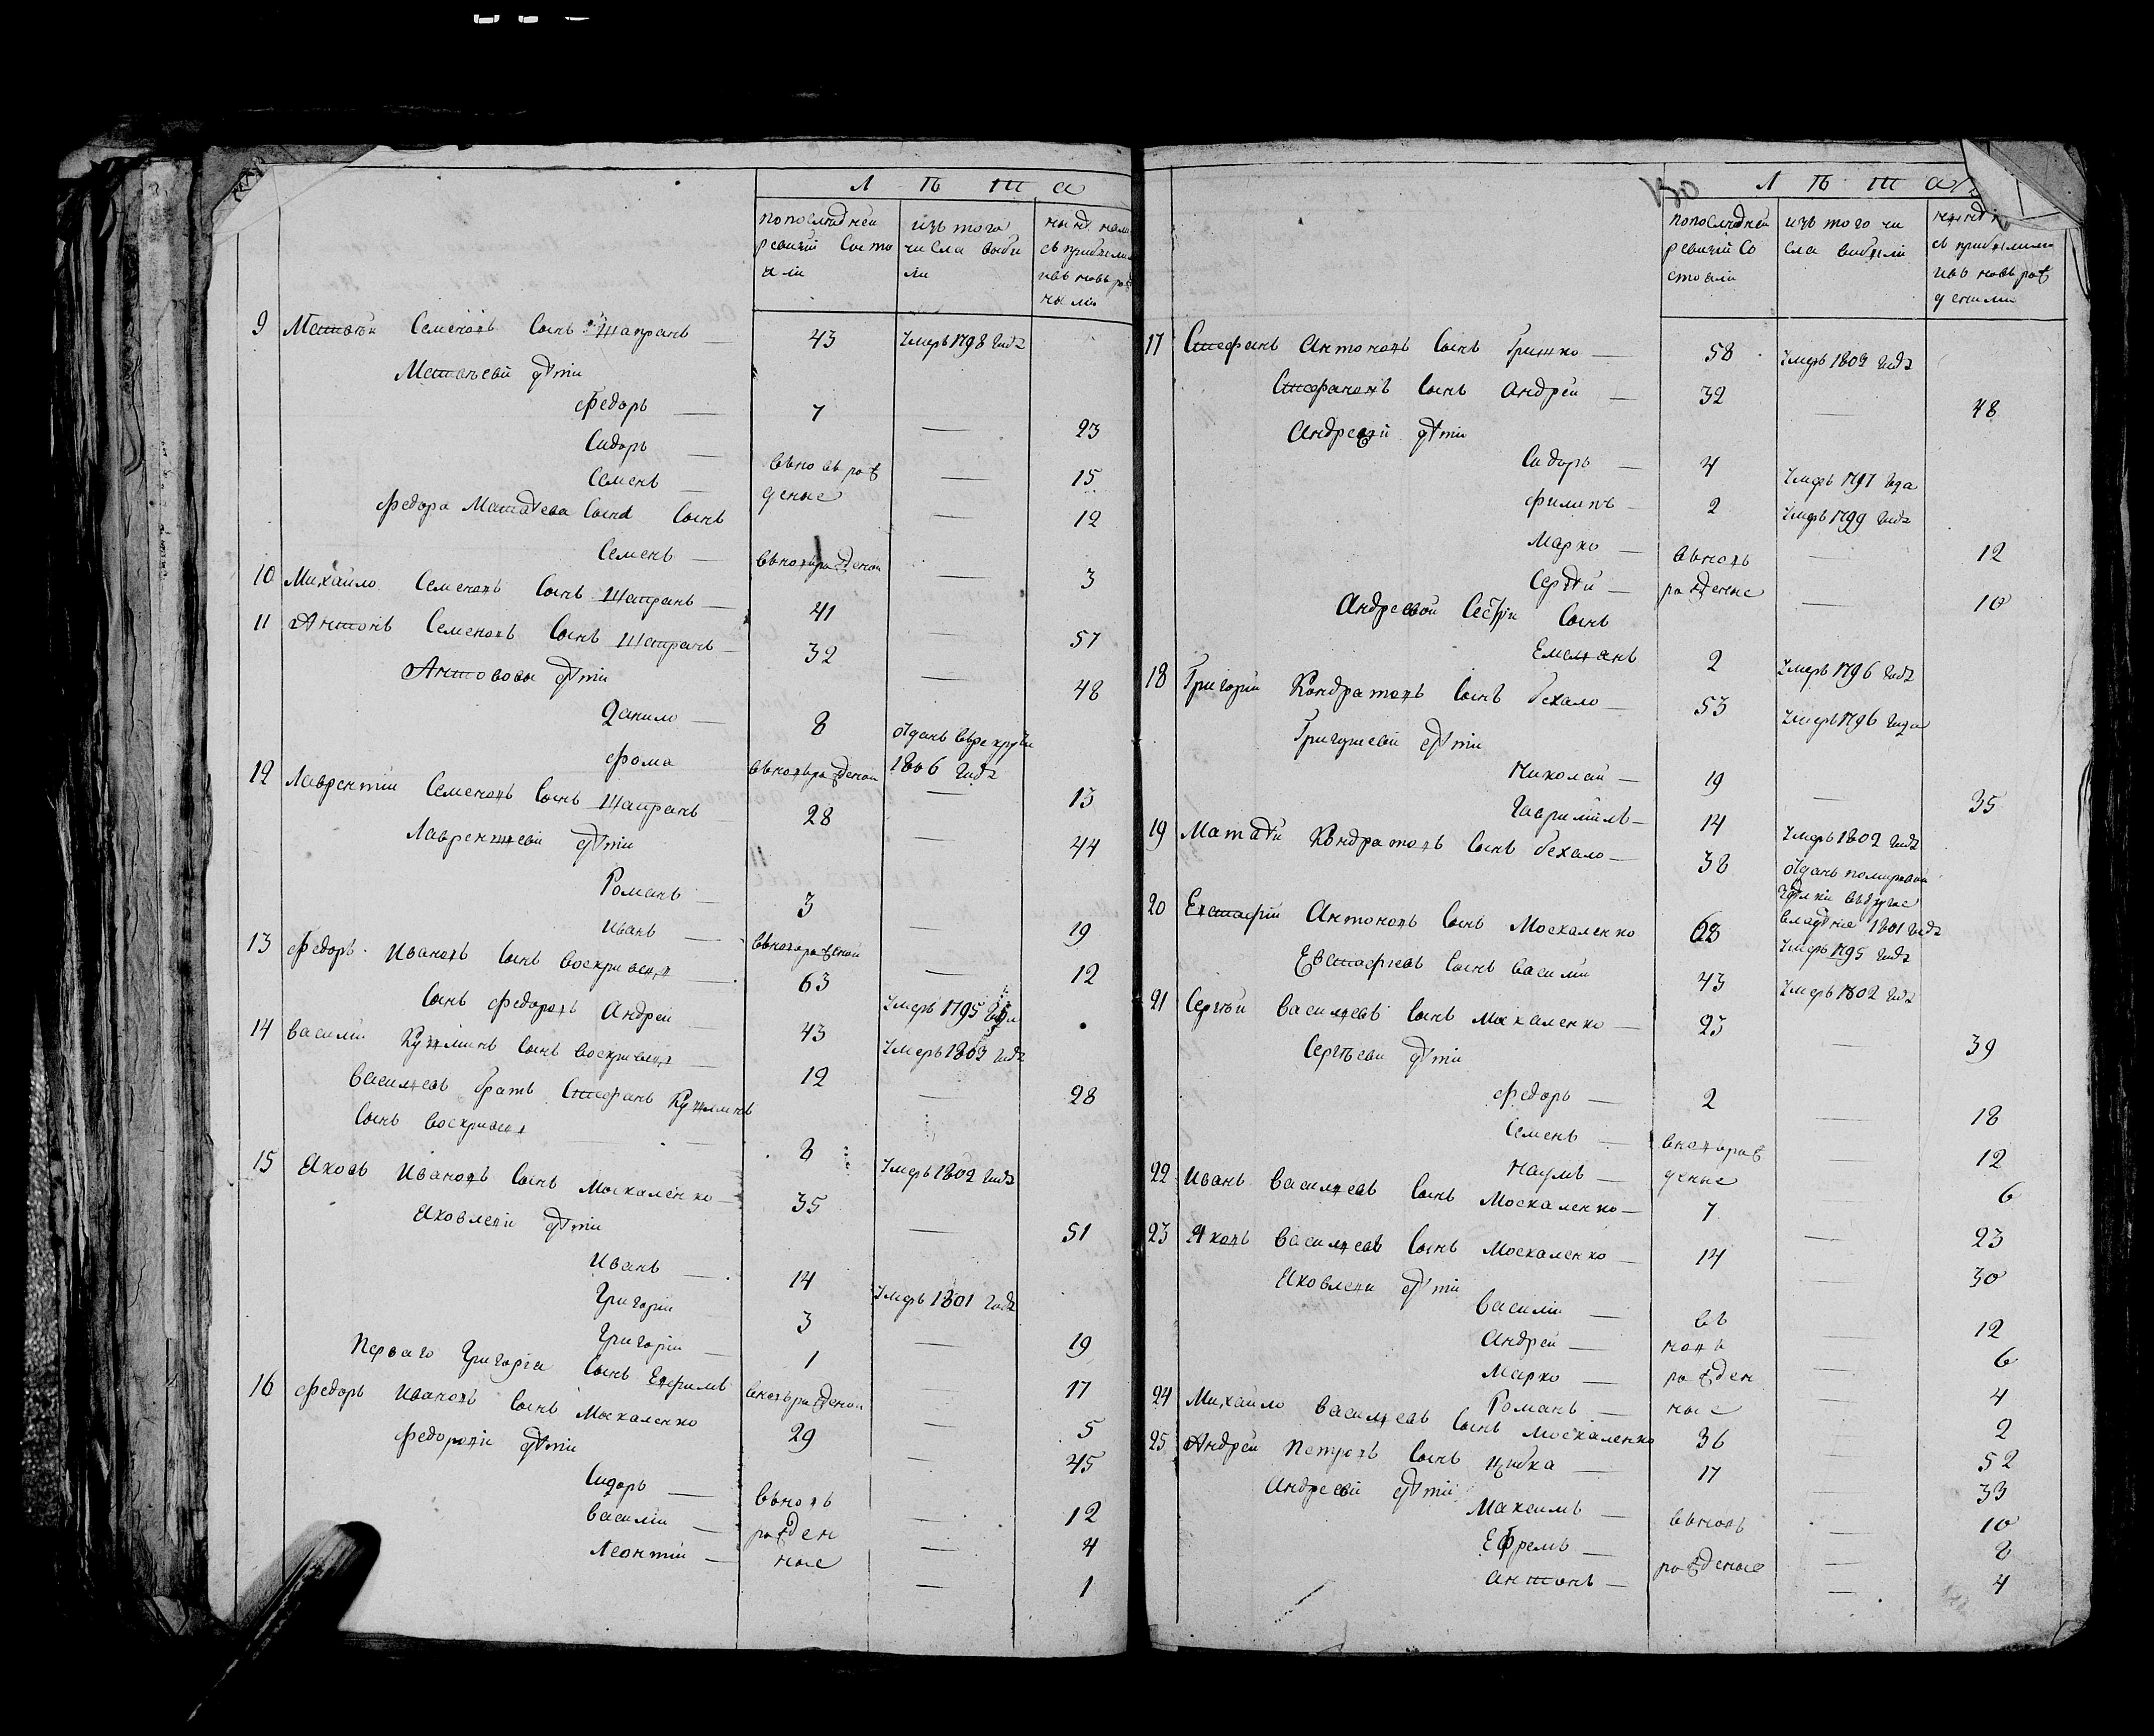 Л Ѣ Т А
попоследней изъ того нынѣ нали
ревизіи состо числа выбы съ прибылыми
яли ли ивъ новь рож
ными
9 Матвѣй Семеновъ Сынъ Шапранъ — 43 Умеръ 1798 Года
Матвѣевы дѣти
Федоръ — 7 — 23
Сидоръ — вьновь рож — 15
Семенъ — деные — 12
Федора Матвѣева Сына Сынъ
Семенъ — вьновьрожденой — 3
10 Михайло Семеновъ Сынъ Шапранъ — 41 — 57
11 Антонъ Семеновъ Сынъ Шапранъ — 32 — 48
Антоновы дѣти
Данило — 8 Отданъ врекруты
1806 Года
Фома вьновьрожденой — 13
12 Лаврентій Семеновъ Сынъ Шапранъ — 28 — 44
Лаврентьевы дѣти
Романъ — 3 — 19
Иванъ — вьновьрожденой — 12
13 Федоръ Ивановъ Сынъ — 63 Умеръ 1795 Года
Сынъ Федоровъ Андрей 43 Умеръ 1803 Года
14 Василій Кузминъ Сынъ — 12 — 28
Васильевъ братъ Стефанъ Кузминъ
Сынъ — 8 Умеръ 1802 Года
15 Яковъ Ивановъ Сынъ Москаленко — 35 — 51
Яковлевы дѣти
Иванъ — 14 Умеръ 1801 Года
Григорій 3 — 19
Григорій — 1 — 17
Перваго Григорія Сынъ Ефимъ вновьрожденой — 5
16 Федоръ Ивановъ Сынъ Москаленко 29 — 45
Федоровы дѣти
Сидоръ — вьновь — 12
Василій — рожден — 4
Леонтій — ные — 1
130
Л Ѣ Т А
попоследней изъ того чи нынѣ
ревизіи со сла выбыли съ прибылыми
стояли ивъ новь рож
деными
17 Стефанъ Антоновъ Сынъ Гришко — 58 Умеръ 1802 Года
Стефановъ Сынъ Андрей — 32 — 48
Андреевы дѣти
Сидоръ — 4 Умеръ 1797 Года
Филипъ — 2 Умеръ 1799 Года
Марко — вьновь — 12
Сергѣй — рожденые — 10
Андреевой Сестры Сынъ
Емельянъ 2 Умеръ 1796 Года
18 Григорій Кондратовъ Сынъ Бехало — 53 Умеръ 1796 Года
Григорьевы дѣти
Николай — 19 — 35
Гаврыилъ — 14 Умеръ 1802 Года
19 Матвѣй Кондратовъ Сынъ Бехало — 38 Отданъ помировой
здѣлки въдругое
владѣніе 1801 Года
20 Евстафій Антоновъ Сынъ Москаленко 68 Умеръ 1795 Года
Евстафіевъ Сынъ Василій 43 Умеръ 1802 Года
21 Сергѣй Васильевъ Сынъ Москаленко — 23 — 39
Сергѣевы дѣти
Федоръ — 2 — 18
Семенъ — вновьрож — 12
Наумъ — деные — 6
22 Иванъ Васильевъ Сынъ Москаленко — 7 — 23
23 Яковъ Васильевъ Сынъ Москаленко — 14 — 30
Яковлевы дѣти
Василій — въ — 12
Андрей — новь — 6
Марко — рожден — 4
Романъ — ные — 2
24 Михайло Васильевъ Сынъ Москаленко 36 — 52
25 Андрей Петровъ Сынъ Цибка — 17 — 33
Андреевы дѣти
Максимъ — вьновь — 10
Ефремъ — рожденые — 8
Антонъ — — 4